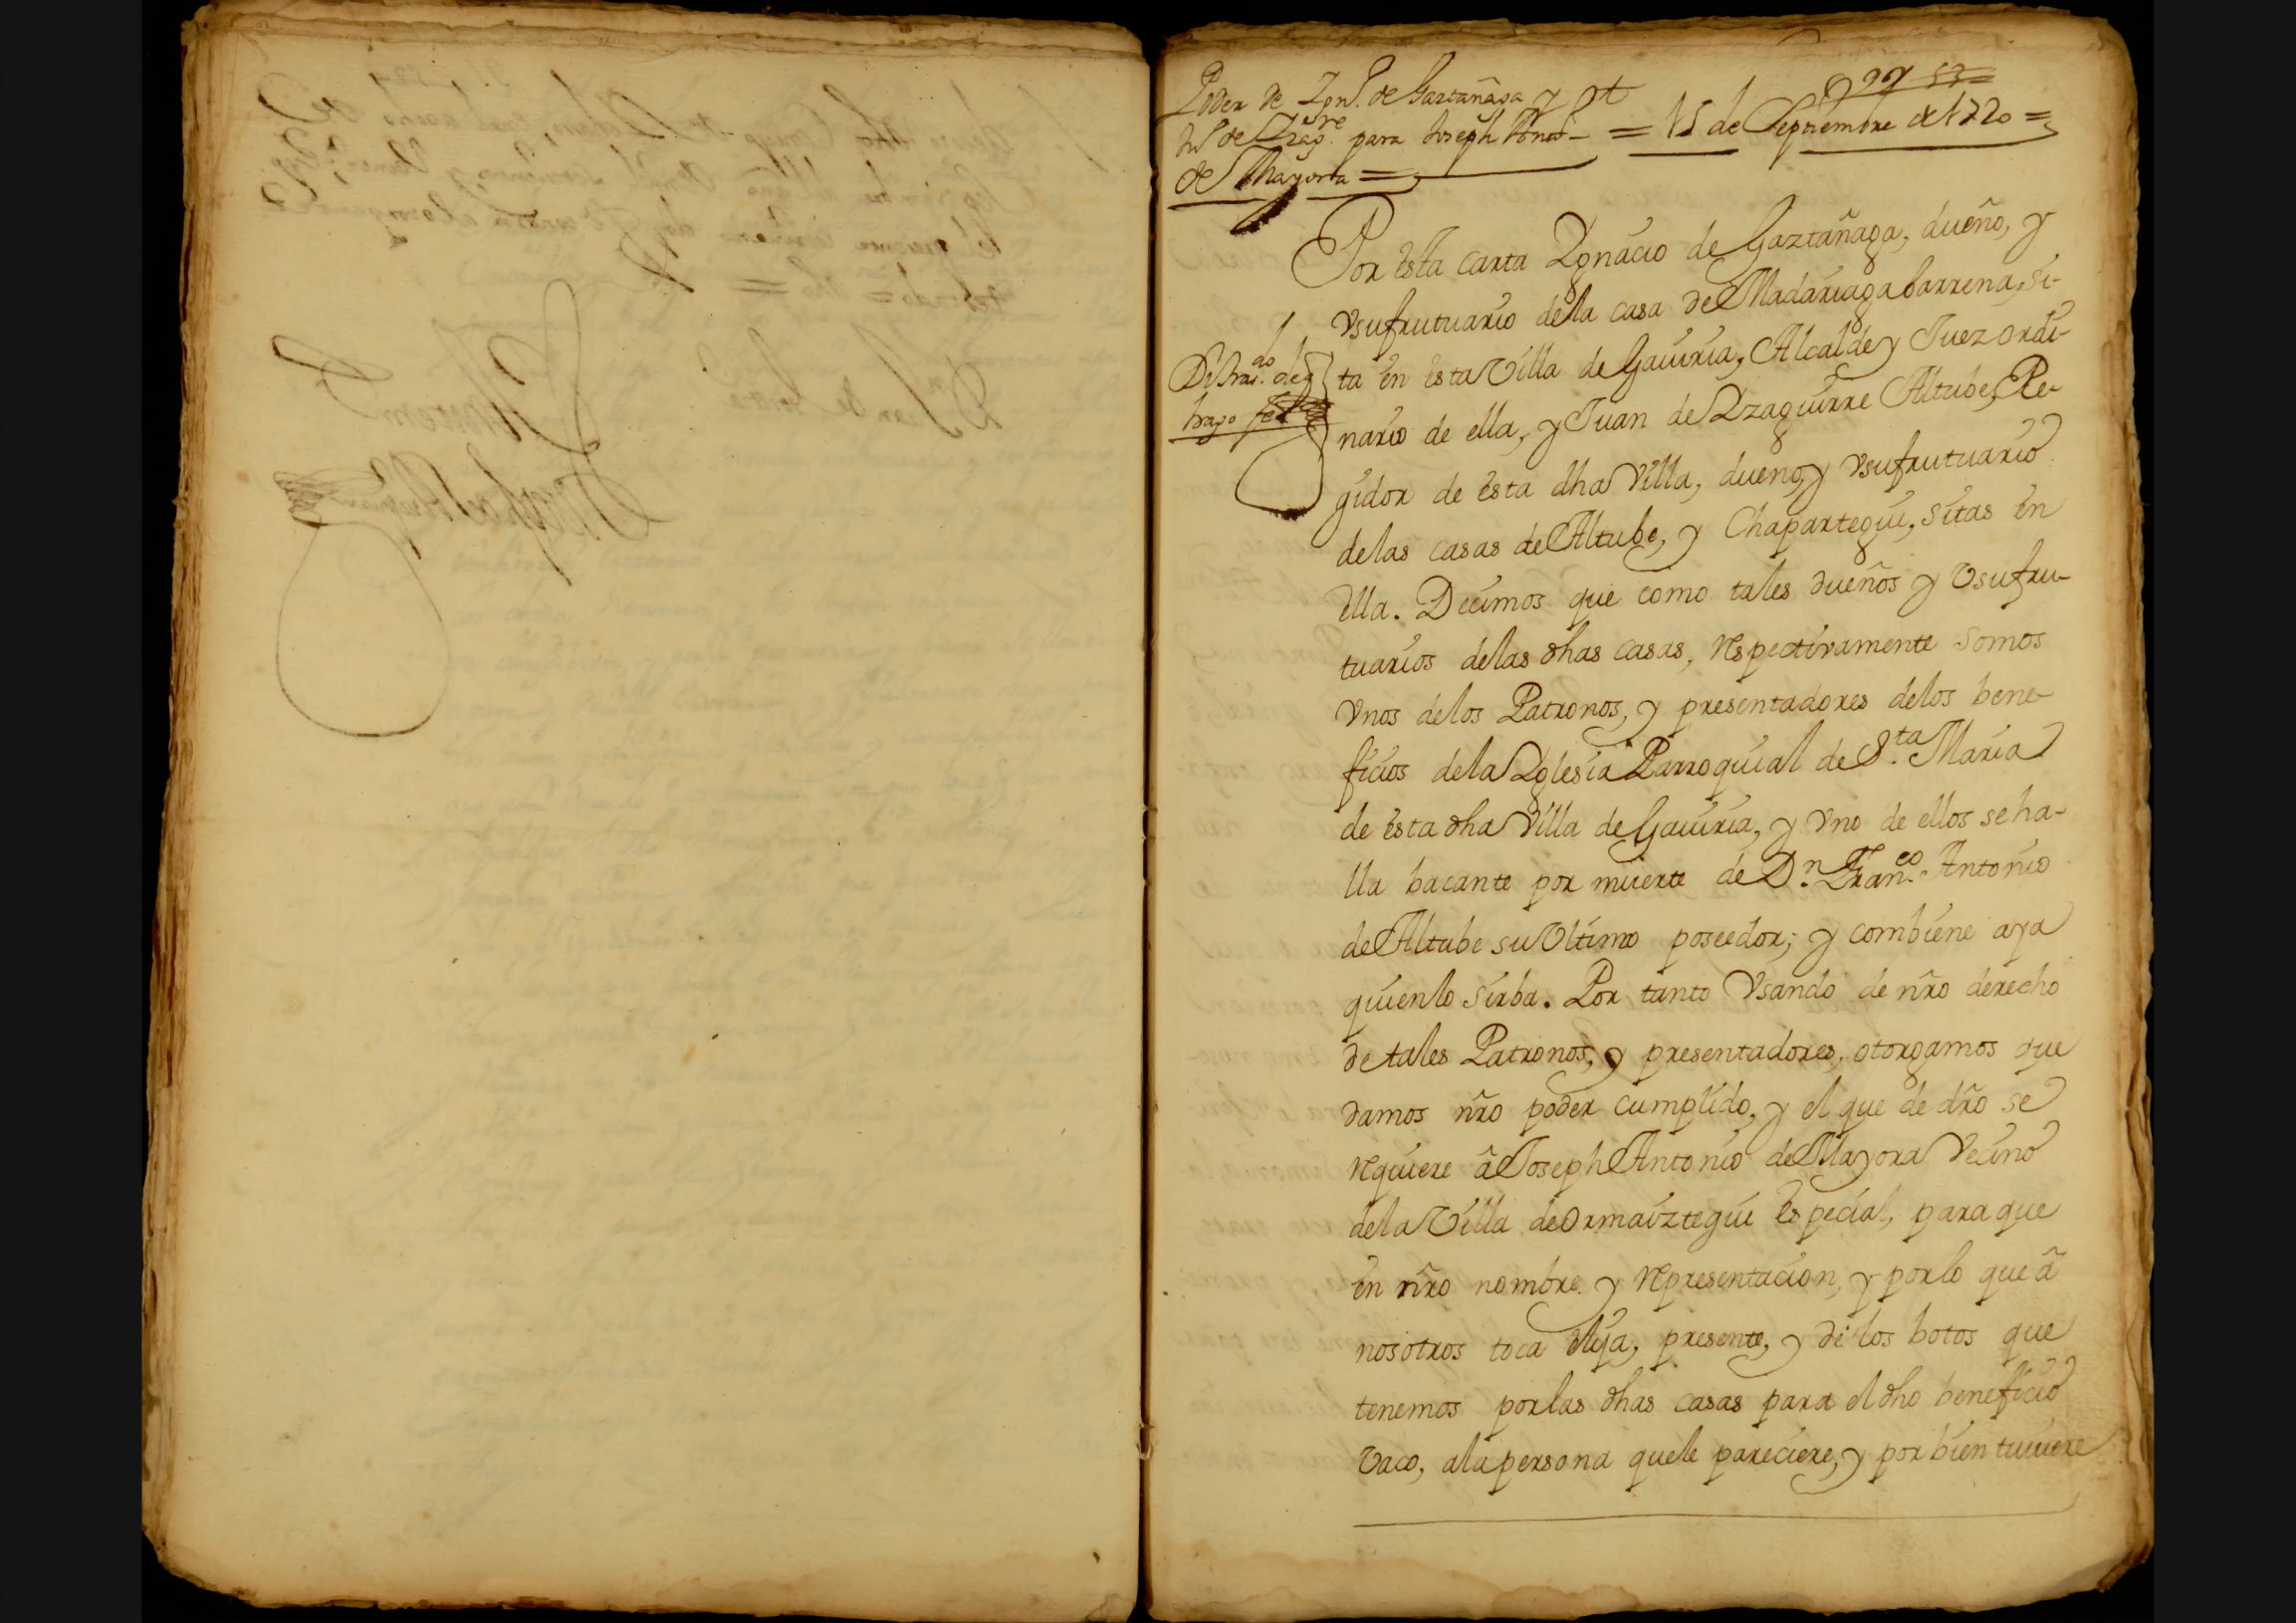 Poder de Ign.º de Gaztañaga y ot
de Yzag.rre para Joseph Anto
de Mayora =
= 15 de Septiembre de 1720 =
Por esta carta Ygnacio de Gaztañaga, dueño, y
vsufrutuario dela casa de Madariaga barrena, si-
ta en esta Villa de Gauiria, Alcalde y Juez ordi-
nario de ella, y Juan de Yzaguirre Altube, Re-
gidor de esta dha Villa, dueno, y vsufrutuario
delas casas de Altube, y Chapartegui, sitas en
ella. Decimos que como tales dueños y Vsufru-
tuarios delas dhas casas, respectivamente somos
vnos delos Patronos, y presentadores delos bene-
ficios dela Yglesia Parroquial de S.ta Maria
de esta dha Villa de Gauiria, y vno de ellos se ha-
lla bacante por muerte de D.n Fran.co Antonio
de Altube su Vltimo poseedor; y combiene aya
quien lo sirba. Por tanto Vsando de nr̃o derecho
de tales Patronos, y presentadores, otorgamos que
damos nr̃o poder cumplido, y el que de dr̃o se
requiere â Joseph Antonio de Mayora Vecino
dela Villa de Ormaiztegui especial, para que
en nr̃o nombre y representacion, y por lo que â
nosotros toca elija, presente, y dè los botos que
tenemos por las dhas casas para el dho beneficio
Vaco, ala persona quele pareciere, y por bien tuuiere